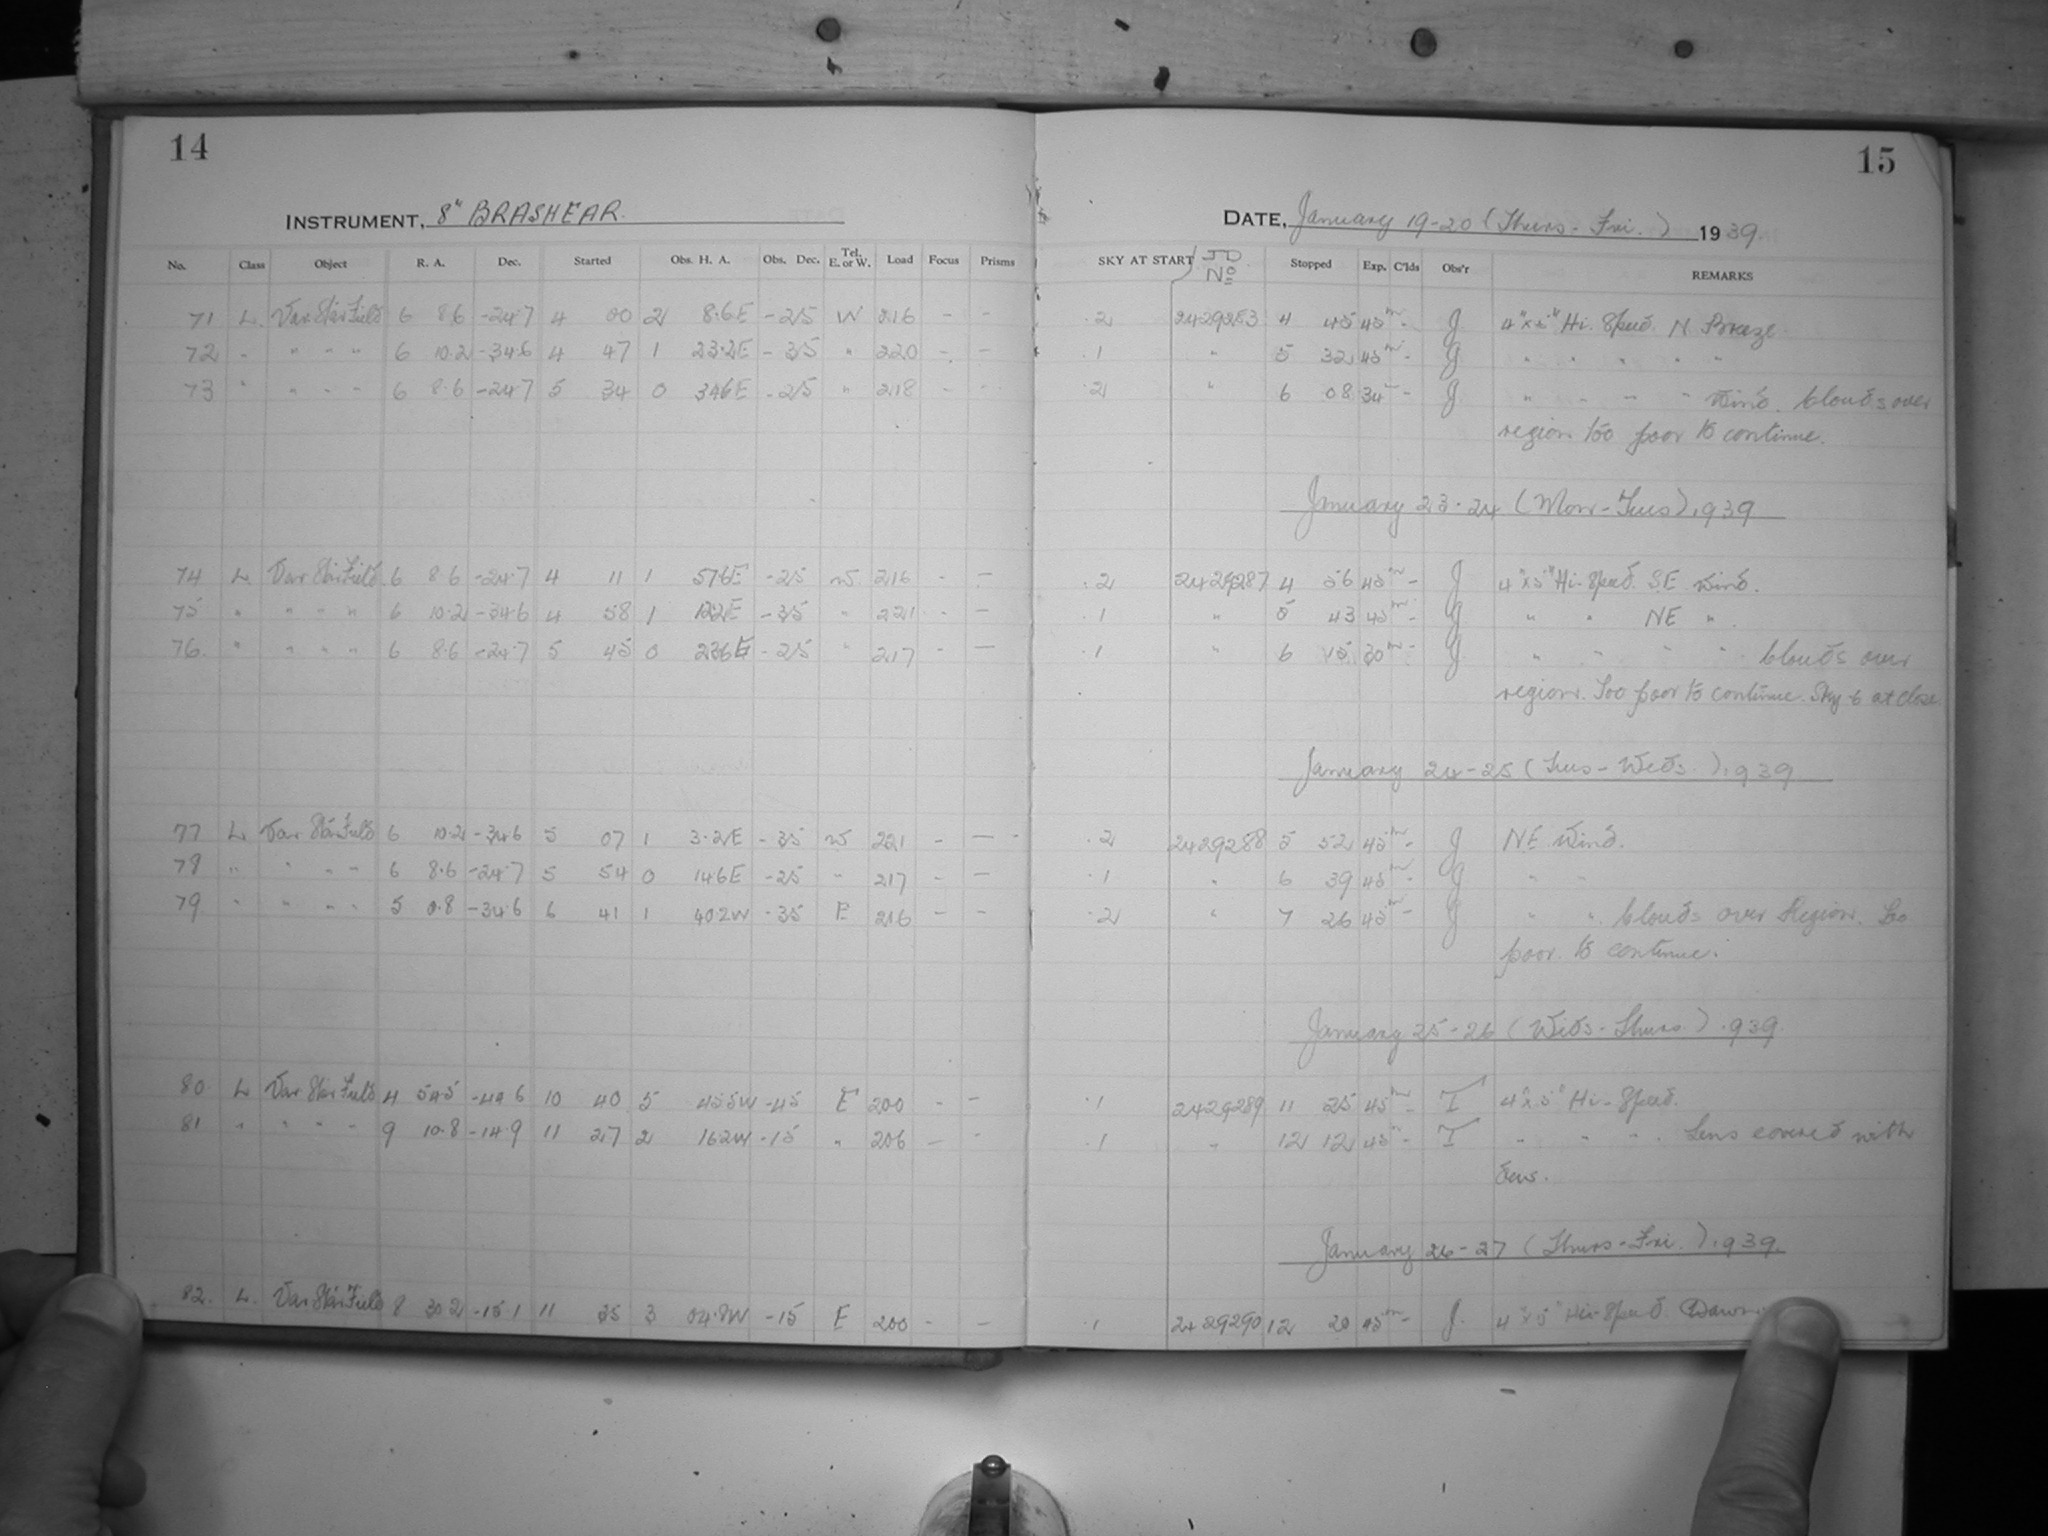 14
15
INSTRUMENT, 8" BRASHEAR.
DATE, January 19-20 (Thurs - Fri.) 1939.
No. Class Object R. A. Dec. Started Obs. H. A. Obs. Dec. Tel. E. or W. Load Focus Prisms SKY AT START JD No Stopped Exp. C'lds Obs'r REMARKS
71 L. Var. Star Field 6 8.6 -24.7 4 00 2 8.6E -25 W 216 - - .2 2429283 4 45 45m - J 4"x5" Hi. Speed. N Breeze
72 " " " " 6 10.2 -34.6 4 47 1 23.2E -35 " 220 - - .1 " 5 32 45m - J " " " " "
73 " " " " 6 8.6 -24.7 5 34 0 34.6E -25 " 218 - - .2 " 6 08 34m - J " " " " Wind. Clouds over
region too poor to continue.
January 23-24 (Mon-Tues) 1939
74 L. Var Star Field 6 8.6 -24.7 4 11 1 57.6E -25 W. 216 - - .2 2429287 4 56 45m - J 4"x5" Hi-Speed. SE Wind.
75 " " " " 6 10.2 -34.6 4 58 1 12.2E -35 " 221 - - .1 " 5 43 45m - J " " NE ".
76. " " " " 6 8.6 -24.7 5 45 0 23.6E -25 " 217 - - .1 " 6 15 30m - J " " " " Clouds over
region. Too poor to continue. Sky-6 at close.
January 24-25 (Tues-Weds.) 1939
77 L. Var Star Field 6 10.2 -34.6 5 07 1 3.2E -35 W 221 - - .2 2429288 5 52 45m - J NE Wind.
78 " " " " 6 8.6 -24.7 5 54 0 14.6E -25 " 217 - - .1 " 6 39 45m - J " "
79 " " " " 5 0.8 -34.6 6 41 1 40.2W -35 E 216 - - .2 " 7 26 45m - J " ". Clouds over Region. Too
poor to continue.
January 25-26 (Weds-Thurs.) 1939
80 L Var Star Field 4 54.5 -44.6 10 40 5 45.5W -45 E 200 - - .1 2429289 11 25 45m - T 4"x5" Hi-Speed.
81 " " " " 9 10.8 -14.9 11 27 2 16.2W -15 " 206 - - .1 " 12 12 45m - T " " " ". Lens covered with
dew.
January 26-27 (Thurs-Fri.) 1939.
82. L. Var Star Field 8 30.2 -15.1 11 35 3 04.8W -15 E 200 - - .1 2429290 12 20 45m - J. 4"x5" Hi-Speed.